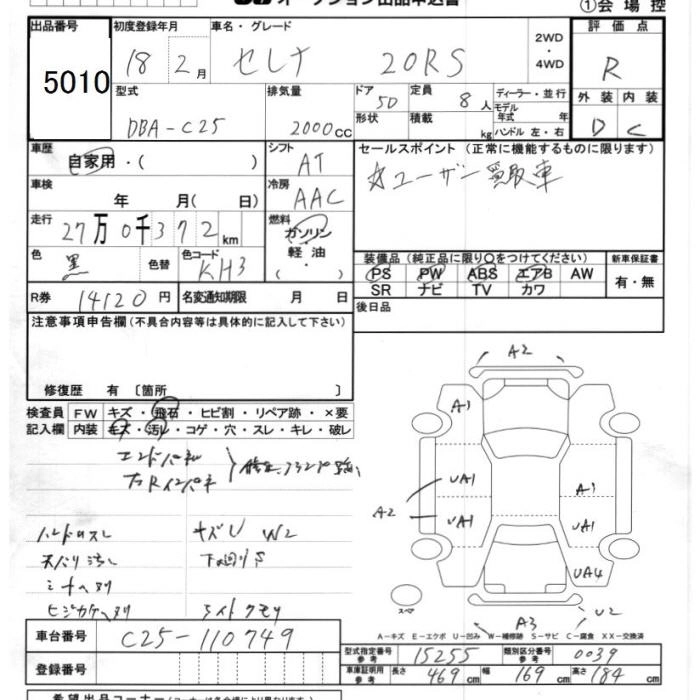 オークション出品申込書
①会場控
出品番号 初度登録年月 車名・グレード 評価点
5010 18 2月 セレナ 20RS 2WD・4WD R
型式 排気量 ドア 定員 ディーラー・並行 外装 内装
DBA-C25 2000cc 5D 8人 モデル年式 年 D C
形状 積載 kg ハンドル 左・右
車歴 シフト セールスポイント(正常に機能するものに限ります)
自家用・( ) AT ☆ユーザー買取車
車検 年 月(日) 冷房 AAC
走行 27万0千372km 燃料 ガソリン・軽油・( )
色 黒 色替 色コード KH3
装備品(純正品に限り○をつけてください) 新車保証書
PS PW ABS エアB AW 有・無
SR ナビ TV カワ
R券 14120円 名変通知期限 月 日 後日品
注意事項申告欄(不具合内容等は具体的に記入して下さい)
修復歴 有〔箇所 〕
検査員 FW キズ・飛石・ヒビ割・リペア跡・×要
記入欄 内装 キズ・汚レ・コゲ・穴・スレ・キレ・破レ
エンドパネル
右Rインパネ
ハンドルスレ キズU W2
天バリ汚レ 下廻りS
シートヘタリ
ヒジカケヘタリ ライトクモリ
A2
A1
UA1 A1
A2 UA1 UA1
UA4
スペア A3 U2
A-キズ E-エクボ U-凹み W-補修跡 S-サビ C-腐食 XX-交換済
車台番号 C25-110749
登録番号
型式指定番号 参考 15255 類別区分番号 参考 0039
車庫証明用 参考 長さ 469cm 幅 169cm 高さ 184cm
希望出品コーナー